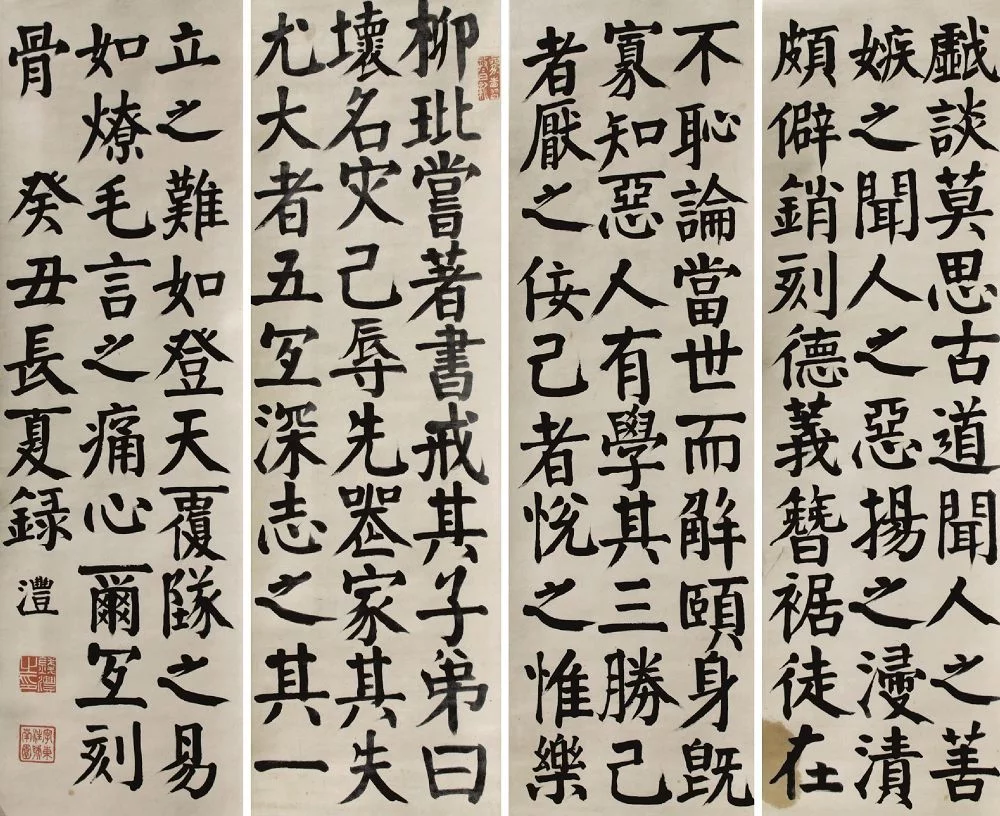 柳玭嘗著書戒其子弟曰
壞名灾己辱先喪家其失
尤大者五冝深志之其一
不恥論當世而解頤身既
寡知惡人有學其三勝己
者厭之佞己者悅之惟樂
戱談莫思古道聞人之善
嫉之聞人之惡揚之濅漬
頗僻銷刻德義簪裾徒在
立之難如登天覆隊之易
如燎毛言之痛心爾冝刻
骨 癸丑長夏録 灃
錢灃之印